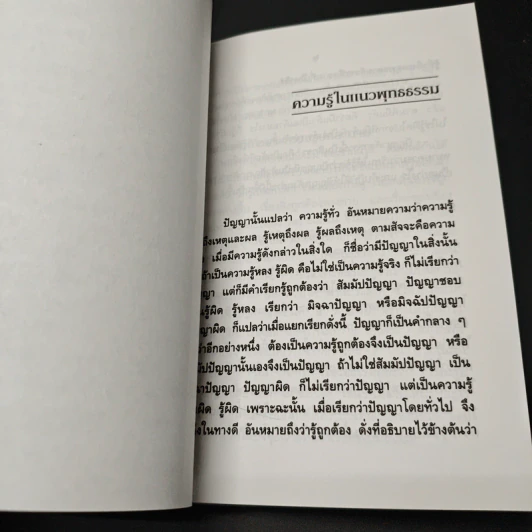 ความรู้ในแนวพุทธธรรม
ปัญญานั้นแปลว่า ความรู้ทั่ว อันหมายความว่าความรู้
ถึงเหตุและผล รู้เหตุถึงผล รู้ผลถึงเหตุ ตามสัจจะคือความ
เมื่อมีความรู้ดังกล่าวในสิ่งใด ก็ชื่อว่ามีปัญญาในสิ่งนั้น
ถ้าเป็นความรู้หลง รู้ผิด คือไม่ใช่เป็นความรู้จริง ก็ไม่เรียกว่า
ญา แต่ก็มีคำเรียกรู้ถูกต้องว่า สัมมัปปัญญา ปัญญาชอบ
นรู้ผิด รู้หลง เรียกว่า มิจฉาปัญญา หรือมิจฉัปปัญญา
ญาผิด ก็แปลว่าเมื่อแยกเรียกดั่งนี้ ปัญญาก็เป็นคำกลาง ๆ
ว่าอีกอย่างหนึ่ง ต้องเป็นความรู้ถูกต้องจึงเป็นปัญญา หรือ
มัปปัญญานั้นเองจึงเป็นปัญญา ถ้าไม่ใช่สัมมัปปัญญา เป็น
าปัญญา ปัญญาผิด ก็ไม่เรียกว่าปัญญา แต่เป็นความรู้
ผิด รู้ผิด เพราะฉะนั้น เมื่อเรียกว่าปัญญาโดยทั่วไป จึง
ในทางดี อันหมายถึงว่ารู้ถูกต้อง ดั่งที่อธิบายไว้ข้างต้นว่า